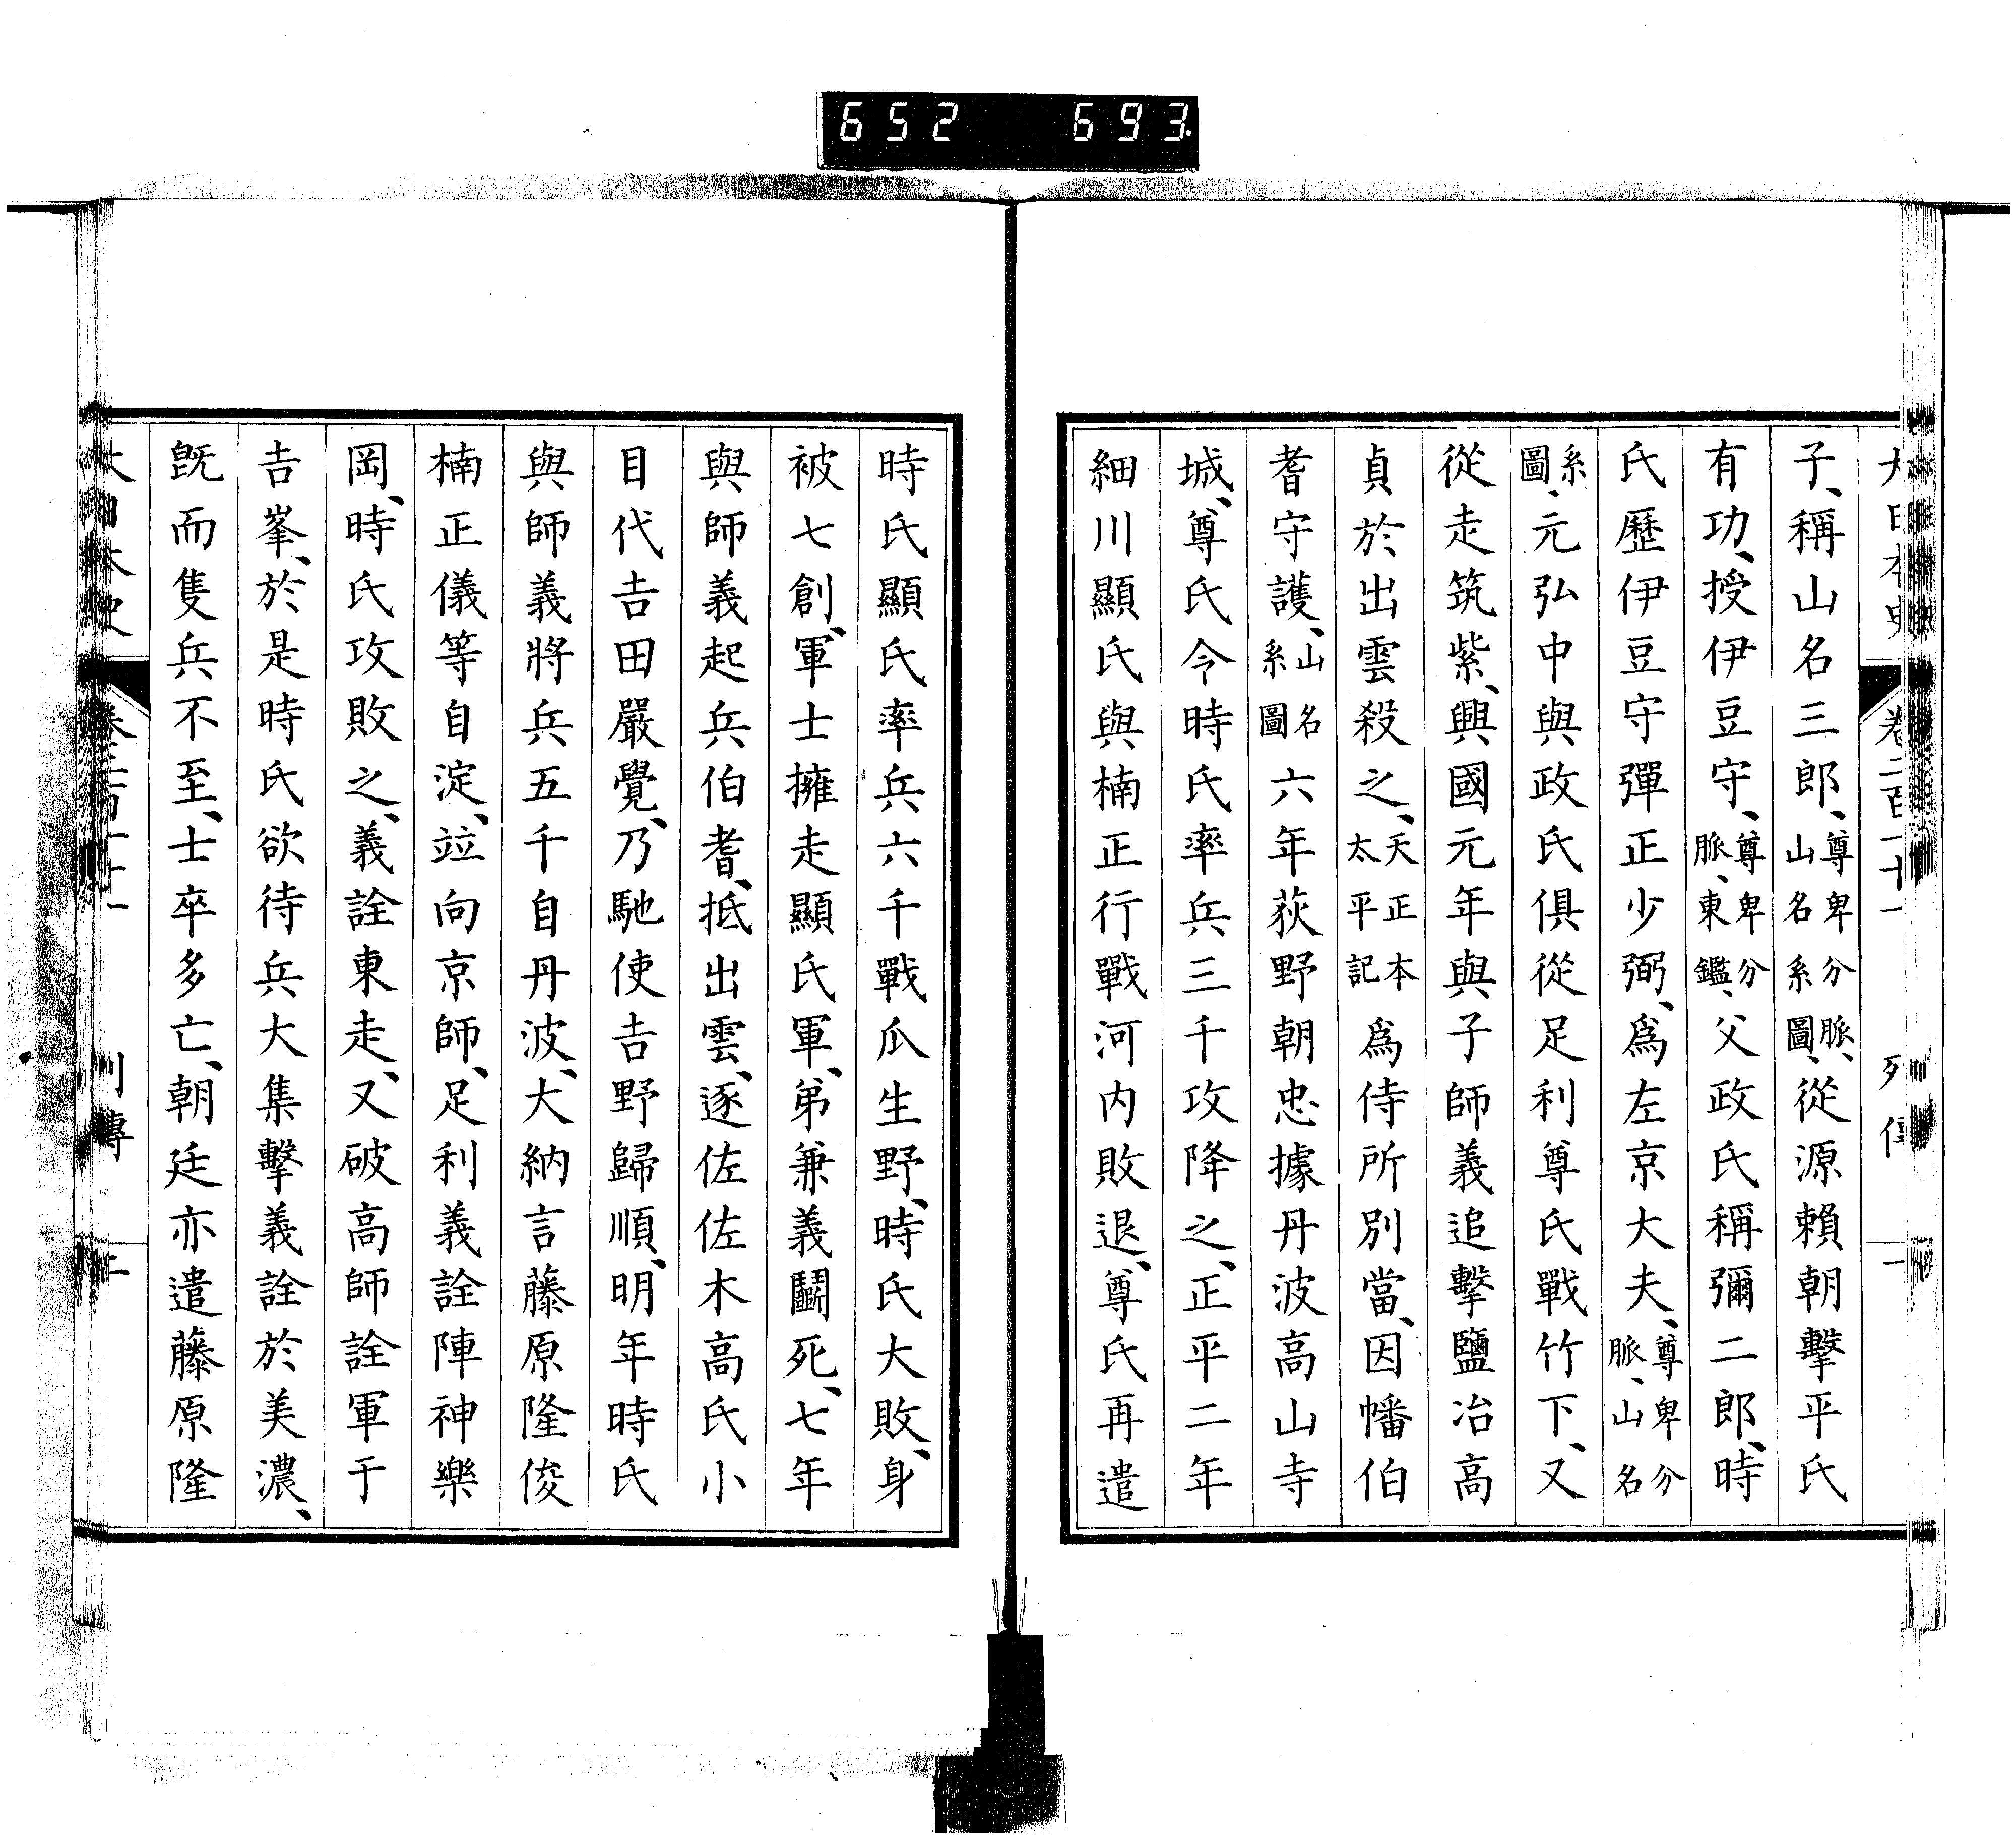 652 693
子、稱山名三郎、尊卑分脈、山名系圖、從源賴朝擊平氏
有功、授伊豆守、尊卑分脈、東鑑、父政氏稱彌二郎、時
氏歷伊豆守彈正少弼、爲左京大夫、尊卑分脈、山名
系圖、元弘中與政氏俱從足利尊氏戰竹下、又
從走筑紫、興國元年與子師義追擊鹽冶高
貞於出雲殺之、天正本太平記爲侍所別當、因幡伯
耆守護、山名系圖六年荻野朝忠據丹波高山寺
城、尊氏令時氏率兵三千攻降之、正平二年
細川顯氏與楠正行戰河内敗退、尊氏再遣
時氏顯氏率兵六千戰瓜生野、時氏大敗、身
被七創、軍士擁走顯氏軍、弟兼義鬭死、七年
與師義起兵伯耆、抵出雲、逐佐佐木高氏小
目代吉田嚴覺、乃馳使吉野歸順、明年時氏
與師義將兵五千自丹波、大納言藤原隆俊
楠正儀等自淀、竝向京師、足利義詮陣神樂
岡、時氏攻敗之、義詮東走、又破高師詮軍于
吉峯、於是時氏欲待兵大集擊義詮於美濃、
旣而隻兵不至、士卒多亡、朝廷亦遣藤原隆